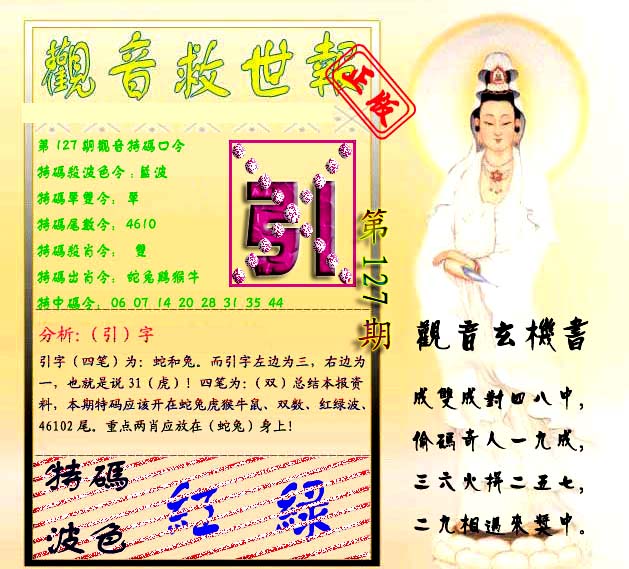 觀音救世報
正版
第127期觀音特碼口令
特碼殺波色令：藍波
特碼單雙令： 單
特碼尾數令： 4610
特碼殺肖令： 雙
特碼出肖令： 蛇兔鷄猴牛
特中碼令： 06 07 14 20 28 31 35 44
引
第127期
分析:（引）字
引字（四笔）为：蛇和兔。而引字左边为三，右边为
一，也就是说 31（虎）！四笔为:（双）总结本报资
料，本期特码应该开在蛇兔虎猴牛鼠、双数、红绿波、
46102 尾。重点两肖应放在（蛇兔）身上！
特碼
波色
紅 綠
觀音玄機書
成雙成對四八中，
偷碼奇人一九成，
三六火拼二五七，
二九相遇來獎中。